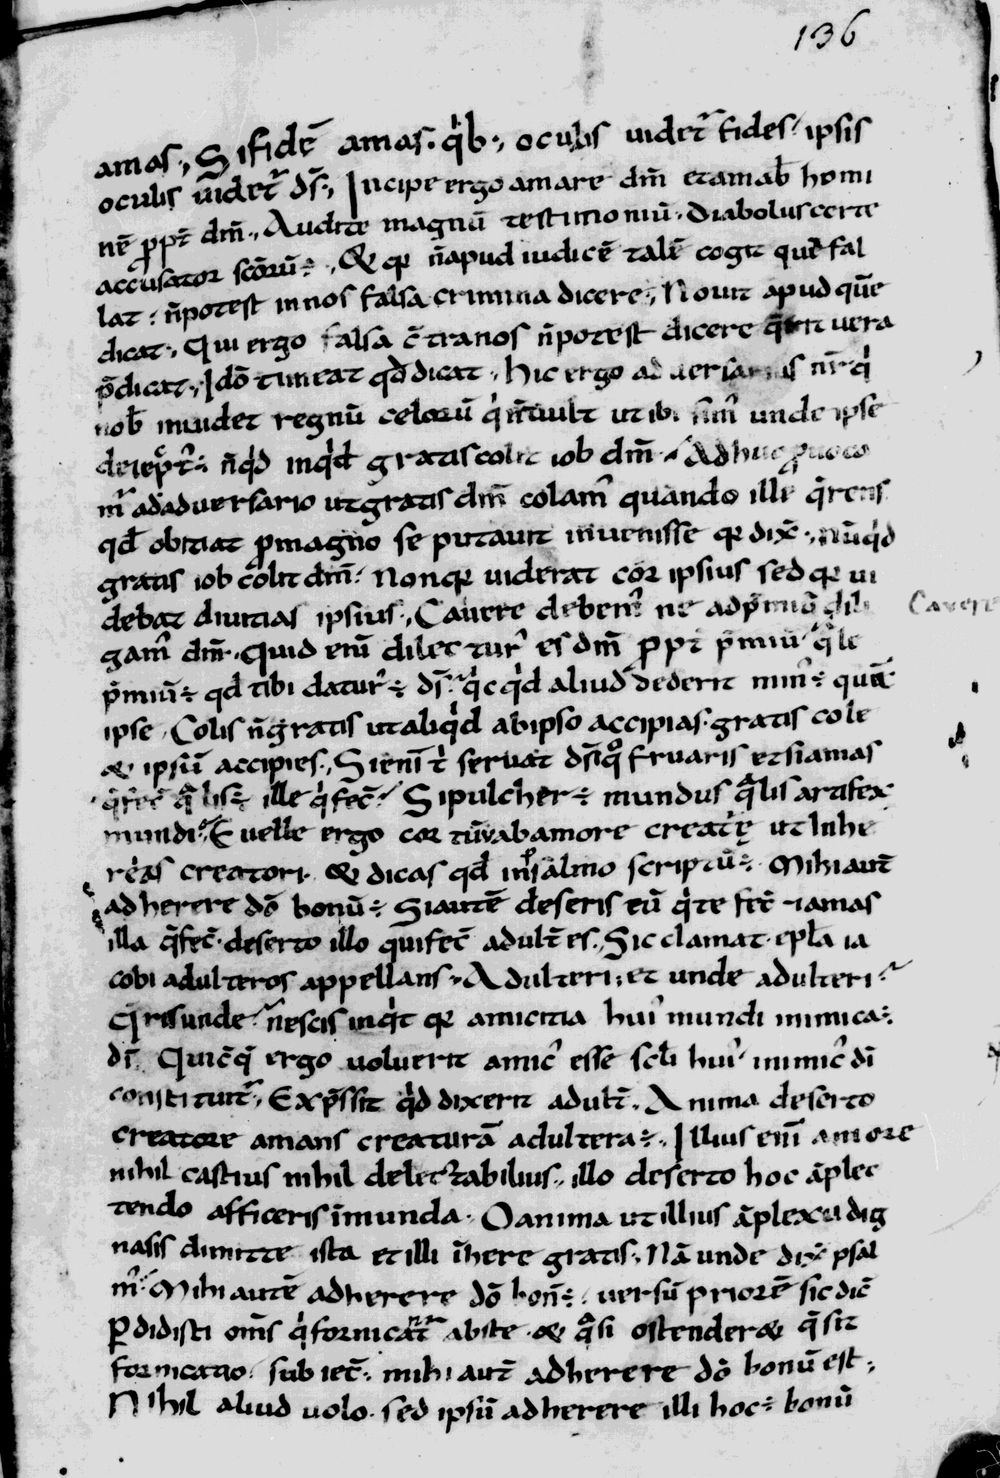 136
amas ., Si fidē amas. q̇b ., oculis uidet᷑ fides ipsis
oculis uidet᷑ ds̄ ., Incipe ergo amare dm̄ et amab̄ homi
nē ꝓpt̄ dm̄ ., Audite magnū testimoniū . Diabolus certe
accusator sc̄orū ÷ ., & qꝛ n̄ apud iudicē talē cogit quē fal
lat : n̄ potest in nos falsa crimina dicere ., Nouit apud quē
dicat ., Qui ergo falsa c̄tra nos n̄ potest dicere vera
p̄dicat ., Idō timeat qd̄ dicat . hic ergo aduersarius nr̄ q̇
nob̄ inuidet regnū celorū q̇ n̄ uult ut ibi sim᷒ unde ipse
n̄ q̇d inq̇d gratis colit iob dm̄ . Adhuc
m᷑ ad aduersario ut gratis dm̄ colam᷒ quando ille q̄rens
qd̄ obiciat ꝓ magno se putauit inuenisse qꝛ dix̄ ., nūq̇d
gratis iob colit dm̄ . Non qꝛ uiderat cor ipsius sed qꝛ ui
debat diuitias ipsius ., Cauere debem᷒ ne ad p̄miū dili Cavere
gam᷒ dm̄ . Quid enī dilectur᷒ es dm̄ ꝓpt̄ p̄miū q̄le
p̄miū ÷ qd̄ tibi datur᷒ ÷ ds̄ . q̇cq̇d aliud dederit min᷒ ÷ quā
ipse . Colis n̄ gratis ut aliq̇d ab ipso accipias . gratis cole
& ipsū accipies ., Si enī t̄ seruat ds̄ q̊ fruaris et si amas
q̄ fec̄ q̄lis ÷ ille q̇ fec̄ . Si pulcher ÷ mundus q̄lis artifex
mundi . Euelle ergo cor tuū ab amore creat᷑ę ut inhe
reas creatori . & dicas qd̄ in psalmo scriptū ÷ . Mihi aut̄
adherere dō bonū ÷ Si autē deseris eū q̇ te fec̄ & amas
illa q̄ fec̄ . deserto illo qui fec̄ adult̄ es ., Sic clamat . epl̄a ia
cobi adulteros appellans . Adulteri ; et unde adulteri
Q̄ris unde nescis inq̇t qꝛ amicitia hui᷒ mundi inimica ÷
dī Quicq̄ ergo voluerit amic᷒ esse scl̄i hui᷒ inimic᷒ dī
constituit᷑ ., Exp̄ssit q̇d dixerit adult̄ . Anima deserto
creatore amans creaturā adultera ÷ . Illius enī amore
nihil castius nihil delectabilius . illo deserto hoc āplec
tendo afficeris īmunda . O anima ut illius āplexu dig
naris dimitte ista et illi īhere gratis ., Nā unde dix̄ psal
m᷒ . Mihi autē adherere dō bon̄ ÷ . uersū priorē sic dic̄
ꝑdidisti om̄s q̇ fornicant᷑ abs te . & q̊si ostender& q̄ sit
fornicatio . subiec̄ . mihi aut̄ adherere dō bonū est ,
Nihil aliud uolo . sed ipsū adherere illi hoc ÷ bonū